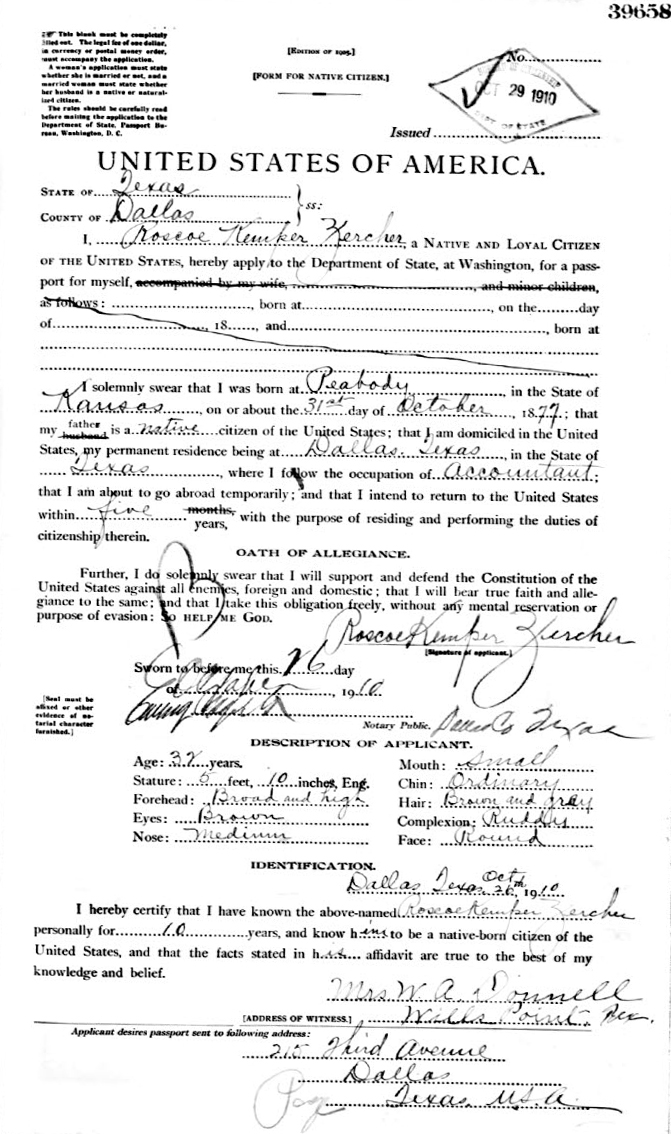 39658
This blank must be completely
filled out. The legal fee of one dollar,
in currency or postal money order,
must accompany the application.
A woman's application must state
whether she is married or not, and a
married woman must state whether
her husband is a native or natural-
ized citizen.
The rules should be carefully read
before mailing the application to the
Department of State, Passport Bu-
reau, Washington, D. C.
[EDITION OF 1905.]
[FORM FOR NATIVE CITIZEN.]
No.
OCT 29 1910
DEPT. OF STATE
Issued
UNITED STATES OF AMERICA.
STATE OF Texas
COUNTY OF Dallas ss:
I, Roscoe Kemper Zercher, a NATIVE AND LOYAL CITIZEN
OF THE UNITED STATES, hereby apply to the Department of State, at Washington, for a pass-
port for myself, accompanied by my wife, , and minor children,
as follows: , born at , on the day
of , 18 , and , born at
I solemnly swear that I was born at Peabody, in the State of
Kansas, on or about the 31st day of October, 1877; that
my father husband is a native citizen of the United States; that I am domiciled in the United
States, my permanent residence being at Dallas, Texas, in the State of
Texas, where I follow the occupation of Accountant;
that I am about to go abroad temporarily; and that I intend to return to the United States
within five months, years, with the purpose of residing and performing the duties of
citizenship therein.
OATH OF ALLEGIANCE.
Further, I do solemnly swear that I will support and defend the Constitution of the
United States against all enemies, foreign and domestic; that I will bear true faith and alle-
giance to the same; and that I take this obligation freely, without any mental reservation or
purpose of evasion: SO HELP ME GOD.
Roscoe Kemper Zercher
[Signature of applicant.]
Sworn to before me this 26 day
of , 1910
[Seal must be
affixed or other
evidence of no-
tarial character
furnished.]
Notary Public. Dallas Co Texas
DESCRIPTION OF APPLICANT.
Age: 32 years. Mouth: Small
Stature: 5 feet, 10 inches, Eng. Chin: Ordinary
Forehead: Broad and high Hair: Brown and gray
Eyes: Brown Complexion: Ruddy
Nose: Medium Face: Round
IDENTIFICATION.
Dallas Texas Oct 26th, 1910
I hereby certify that I have known the above-named Roscoe Kemper Zercher
personally for 10 years, and know him to be a native-born citizen of the
United States, and that the facts stated in his affidavit are true to the best of my
knowledge and belief.
Mrs W. A. Donnell
[ADDRESS OF WITNESS.] Wills Point, Tex.
Applicant desires passport sent to following address:
215 Third Avenue
Dallas
Texas, U.S.A.